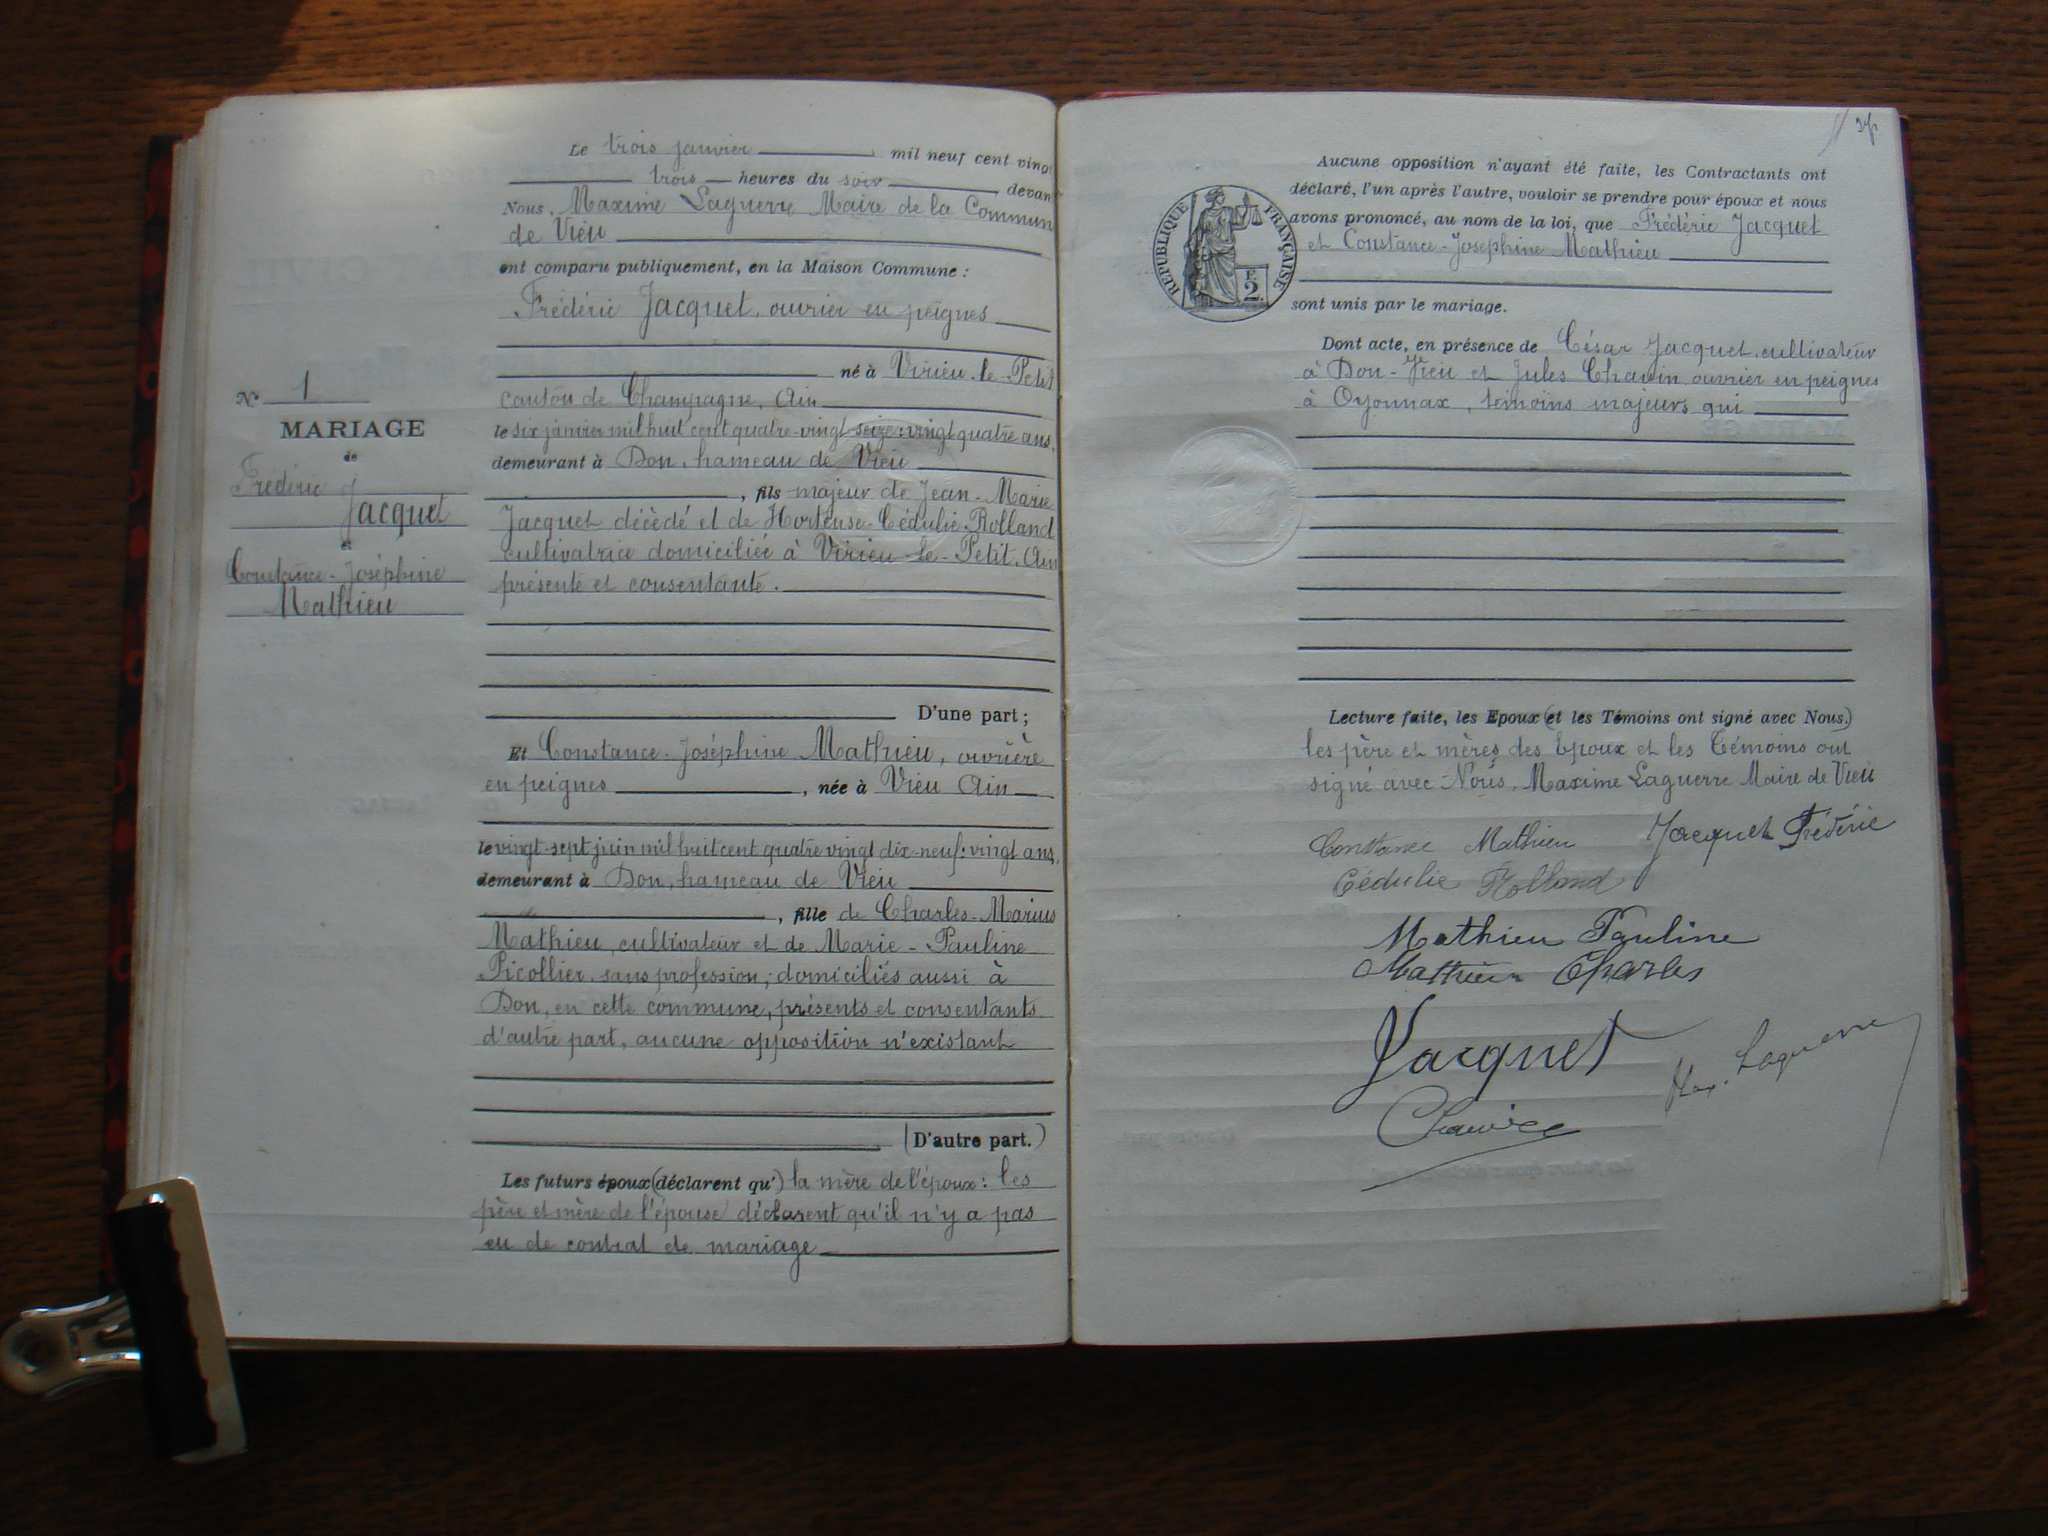 Le trois janvier mil neuf cent vingt
trois heures du soir devant
Nous, Maxime Laguerre Maire de la Commun
de Vieu
ont comparu publiquement, en la Maison Commune :
Frédéric Jacquet, ouvrier en peignes
né à Virieu-le-Petit
canton de Champagne, Ain
le six janvier mil huit cent quatre-vingt-seize : vingt quatre ans,
demeurant à Don, hameau de Vieu
, fils majeur de Jean-Marie
Jacquet décédé et de Hortense-Cédulie Rolland
cultivatrice domiciliée à Virieu-le-Petit, Ain
présente et consentante.
D'une part ;
Et Constance-Joséphine Mathieu, ouvrière
en peignes, née à Vieu Ain
le vingt-sept juin mil huit cent quatre vingt dix-neuf : vingt ans,
demeurant à Don, hameau de Vieu
, fille de Charles-Marius
Mathieu, cultivateur et de Marie-Pauline
Picollier, sans profession ; domiciliés aussi à
Don, en cette commune, présents et consentants
d'autre part, aucune opposition n'existant
(D'autre part.)
Les futurs époux (déclarent qu') la mère de l'époux : les
père et mère de l'épouse déclarent qu'il n'y a pas
eu de contrat de mariage
N° 1
MARIAGE
de
Frédéric
Jacquet
et
Constance-Joséphine
Mathieu
Aucune opposition n'ayant été faite, les Contractants ont
déclaré, l'un après l'autre, vouloir se prendre pour époux et nous
avons prononcé, au nom de la loi, que Frédéric Jacquet
et Constance-Joséphine Mathieu
sont unis par le mariage.
RÉPUBLIQUE FRANÇAISE
F.
2
Dont acte, en présence de César Jacquet, cultivateur
à Don-Vieu et Jules Chavin ouvrier en peignes
à Oyonnax, témoins majeurs qui
Lecture faite, les Epoux (et les Témoins ont signé avec Nous.)
les père et mères des Epoux et les Témoins ont
signé avec Nous, Maxime Laguerre Maire de Vieu
Constance Mathieu Jacquet Frédéric
Cédulie Rolland
Mathieu Pauline
Mathieu Charles
Jacquet
Max. Laguerre